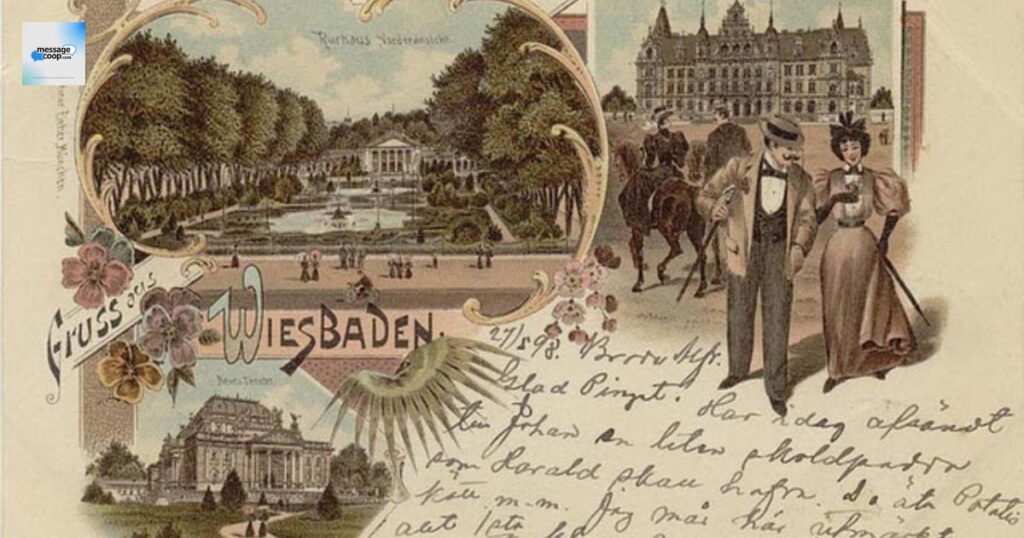 message
coop.com
Kurhaus Nordansicht.
Gruss aus
WIESBADEN.
Neues Theater.
27/5 98. Broder Alfr.
Glad Pingst!
Har i dag afsändt
Johan en liten sköldpadda
som Harald skall hafva. De äta Potatis
kött m.m. Jag mår här utmärkt